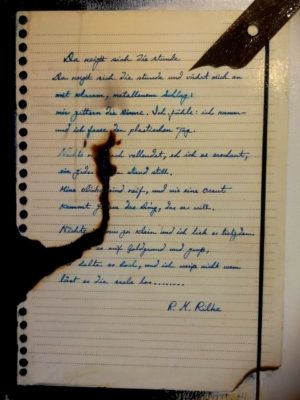 Da neigt sich die stunde
Da neigt sich die stunde und rührt mich an
mit klarem, metallenem Schlag:
mir zittern die Sinne. Ich fühle: ich kann-
und ich fasse den plastischen Tag.
Nichts noch vollendet, eh ich es erschaut,
ein jedes stand still.
Meine Blicke sind reif, und wie eine Braut
kommt jedem das Ding, das er will.
Nichts zu klein und ich lieb es trotzdem
es auf Goldgrund und groß,
halte es hoch, und ich weiß nicht wem
löst es die seele los........
R. M. Rilke